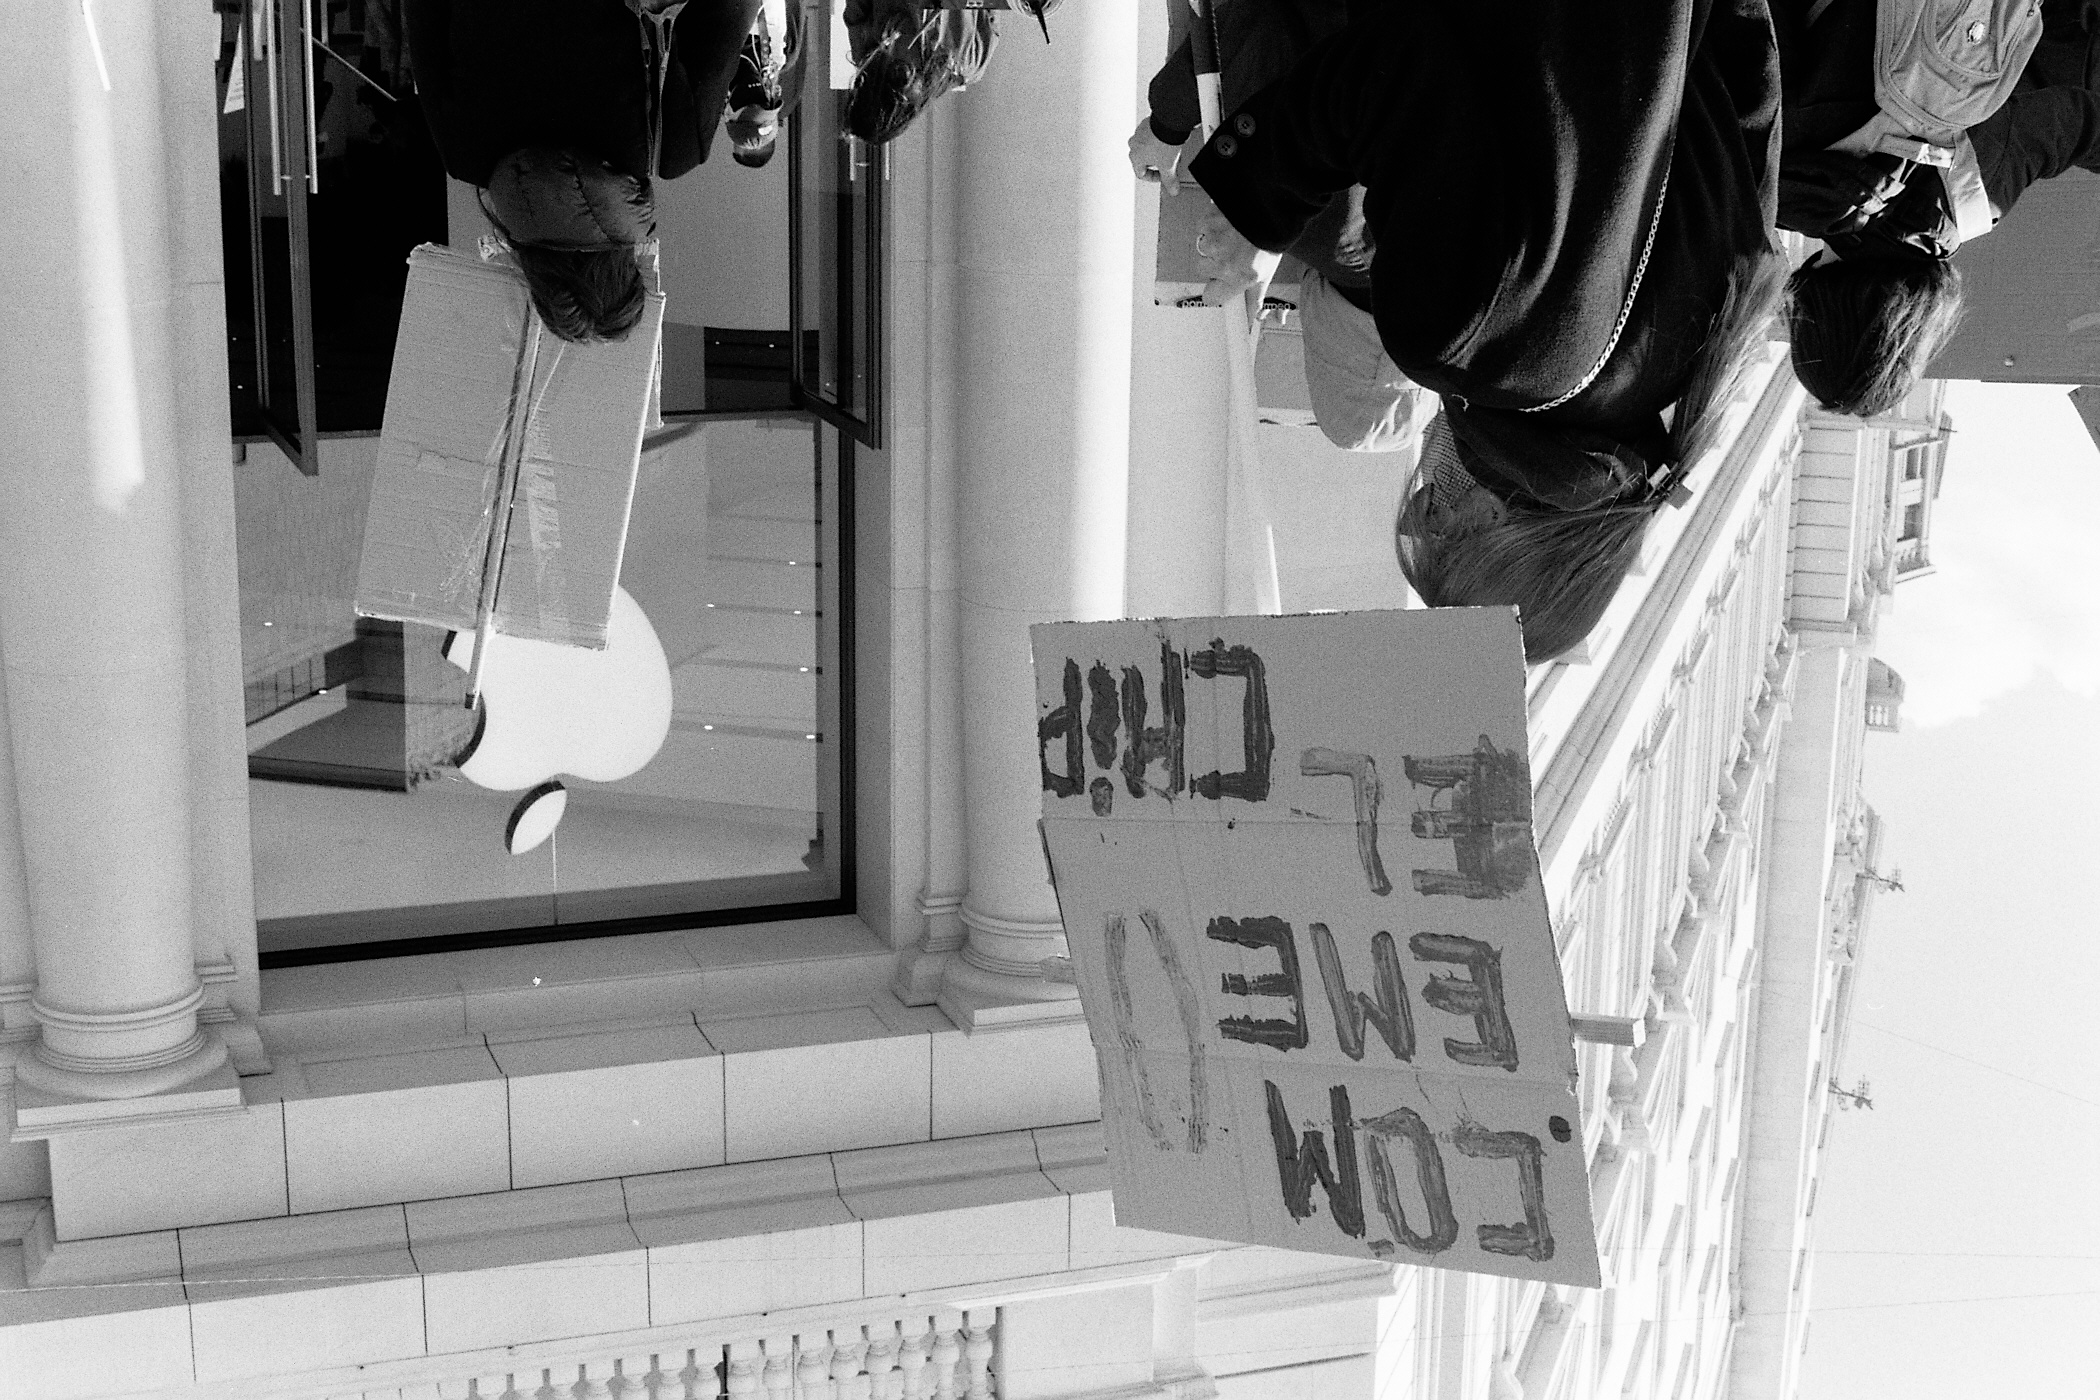 COM
EME
EL CHIP